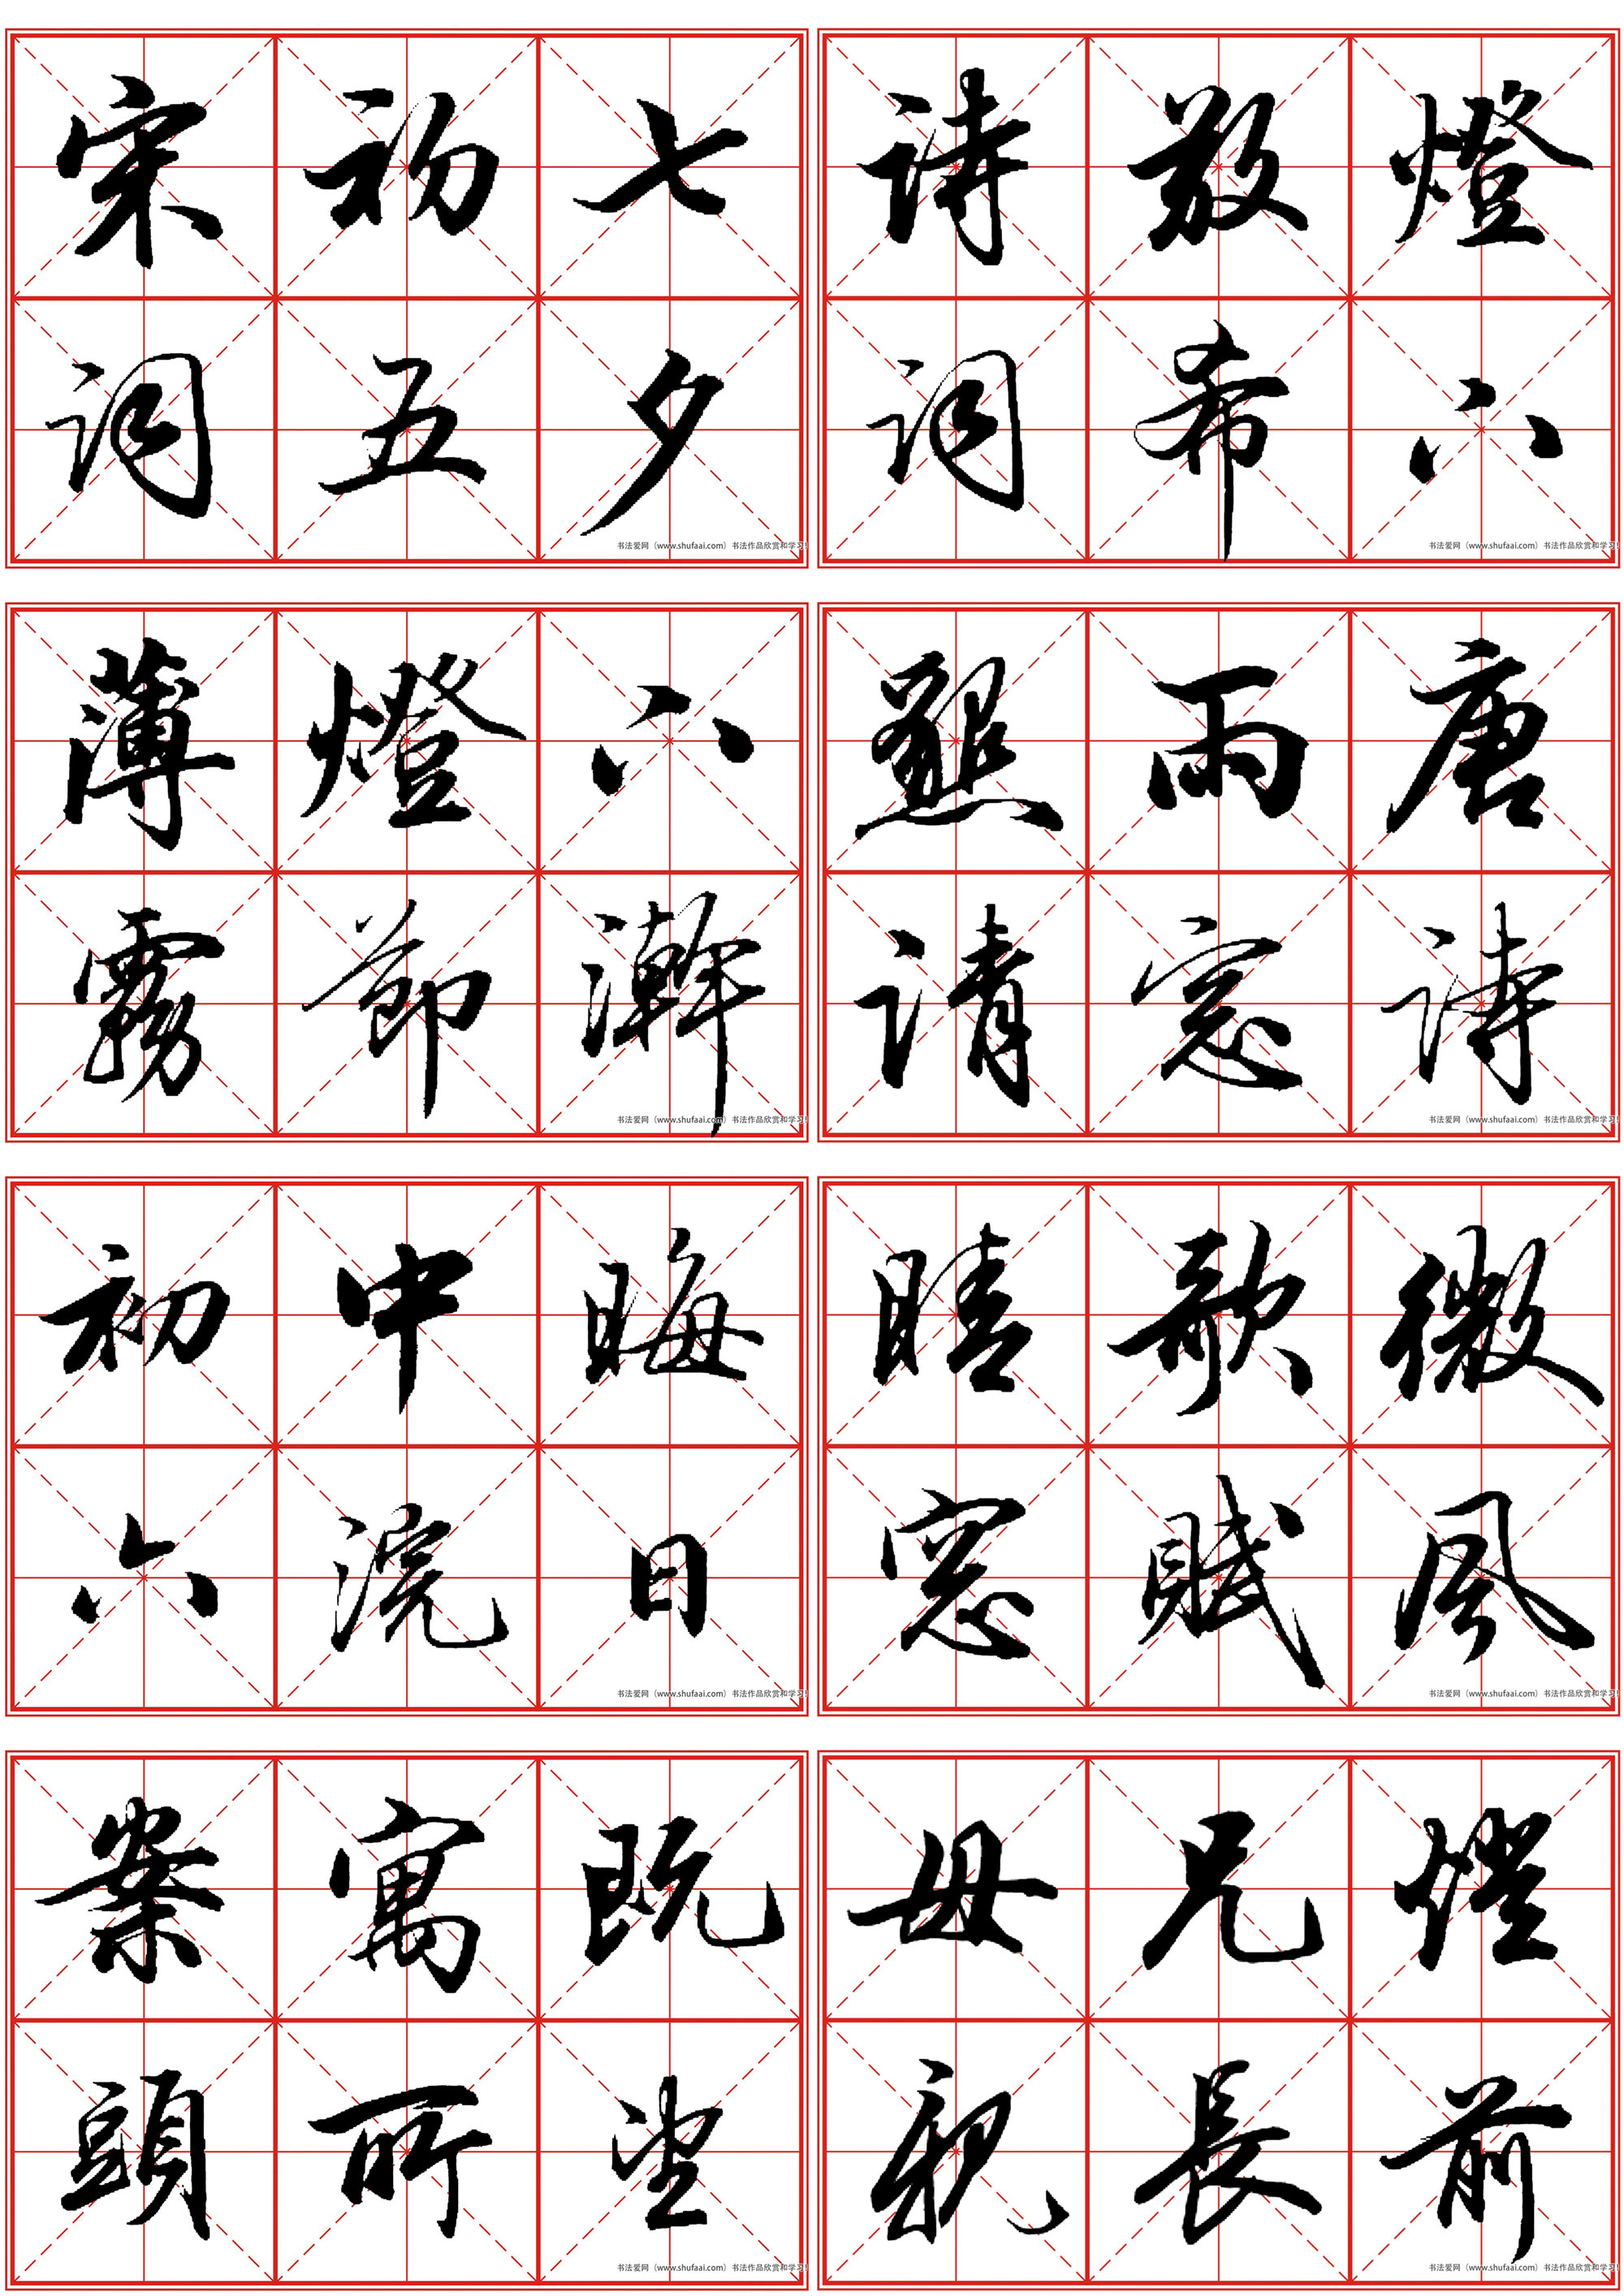 宋詞
初五
七夕
书法爱网（www.shufaai.com）书法作品欣赏和学习！
詩詞
敬希
燈下
书法爱网（www.shufaai.com）书法作品欣赏和学习！
薄霧
燈節
下澣
书法爱网（www.shufaai.com）书法作品欣赏和学习！
懇請
雨窓
唐詩
书法爱网（www.shufaai.com）书法作品欣赏和学习！
初六
中浣
晦日
书法爱网（www.shufaai.com）书法作品欣赏和学习！
晴窓
歌賦
微風
书法爱网（www.shufaai.com）书法作品欣赏和学习！
案頭
寓所
既望
书法爱网（www.shufaai.com）书法作品欣赏和学习！
母親
兄長
燈前
书法爱网（www.shufaai.com）书法作品欣赏和学习！